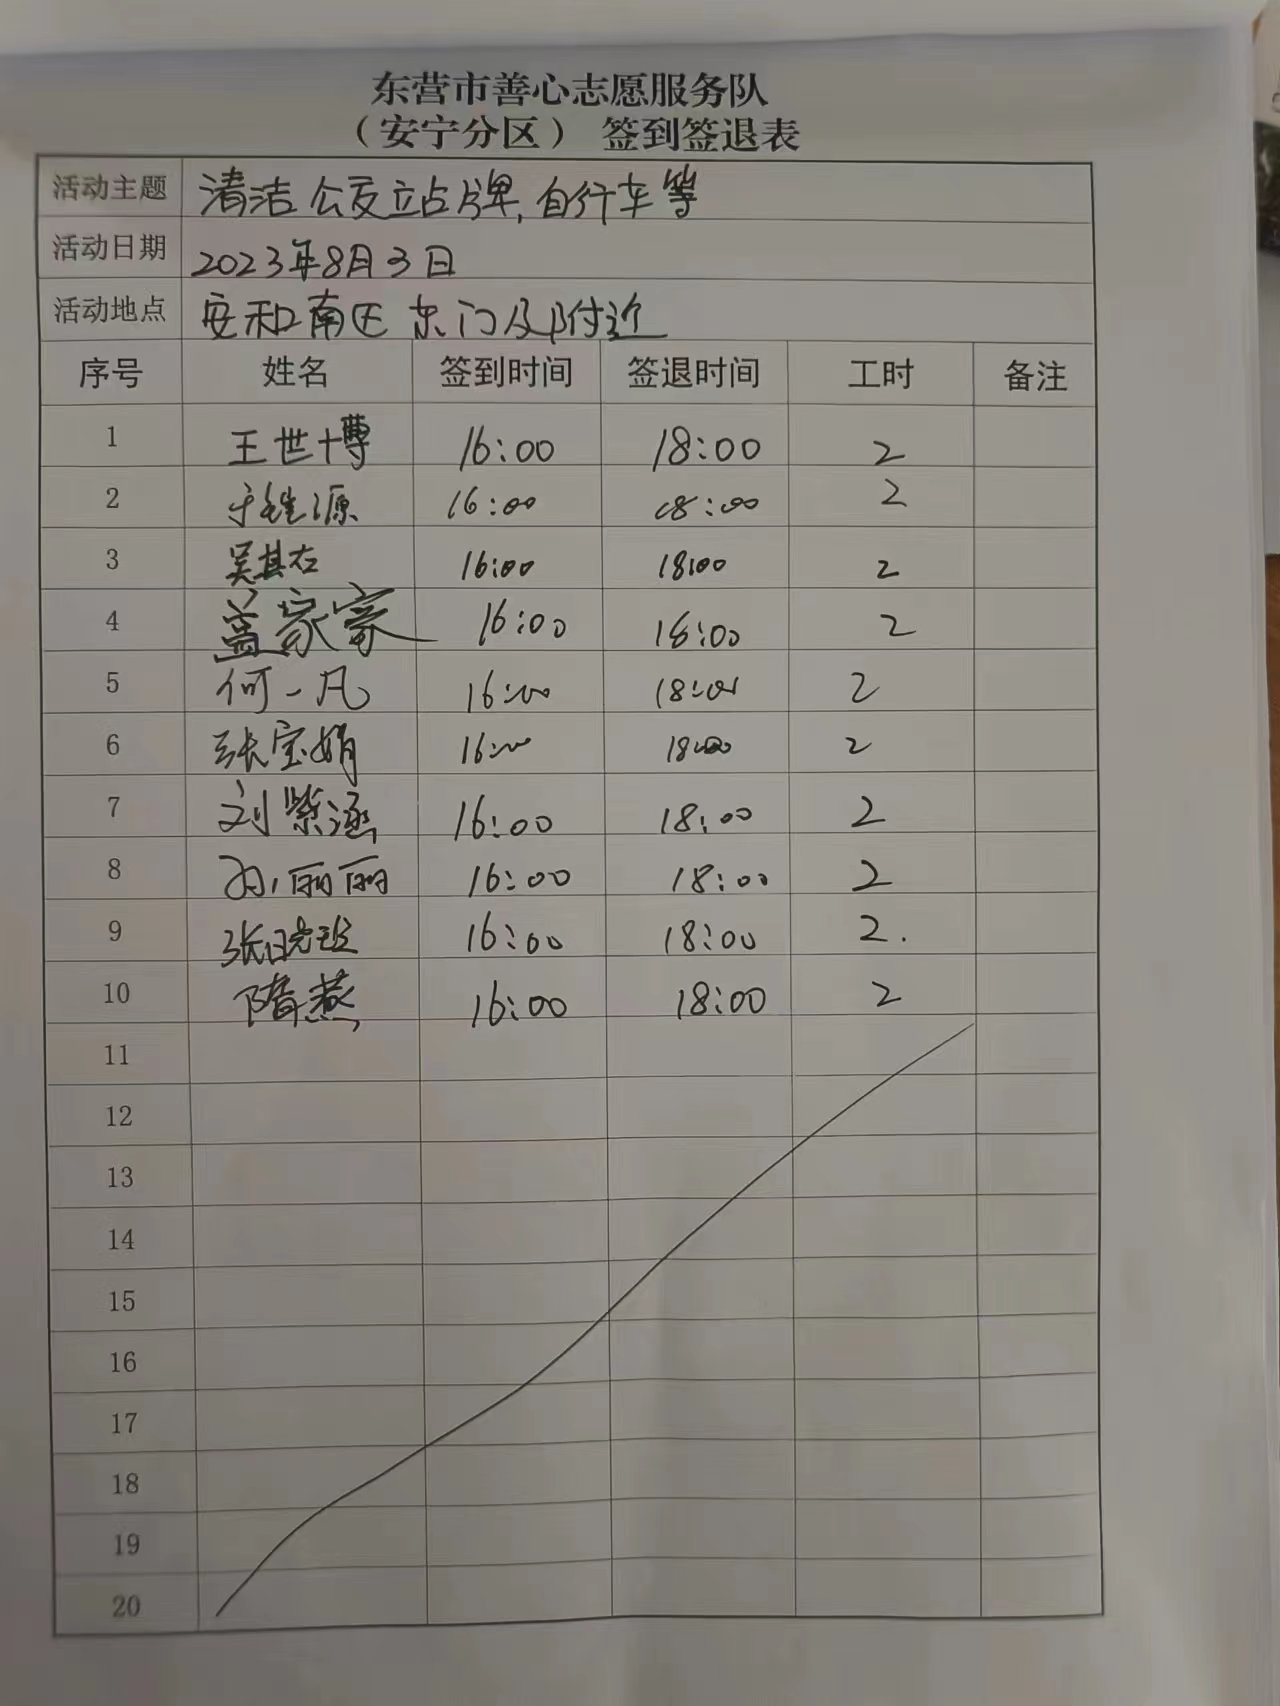 东营市善心志愿服务队
（安宁分区） 签到签退表
活动主题 清洁公交立占牌,自行车等
活动日期 2023年8月3日
活动地点 安和南区东门及附近
序号 姓名 签到时间 签退时间 工时 备注
1 王世博 16:00 18:00 2
2 16:00 18:00 2
3 16:00 18:00 2
4 盖家豪 16:00 18:00 2
5 何一凡 16:00 18:00 2
6 张宝娟 16:00 18:00 2
7 刘紫涵 16:00 18:00 2
8 孙丽丽 16:00 18:00 2
9 16:00 18:00 2.
10 隋燕 16:00 18:00 2
11
12
13
14
15
16
17
18
19
20